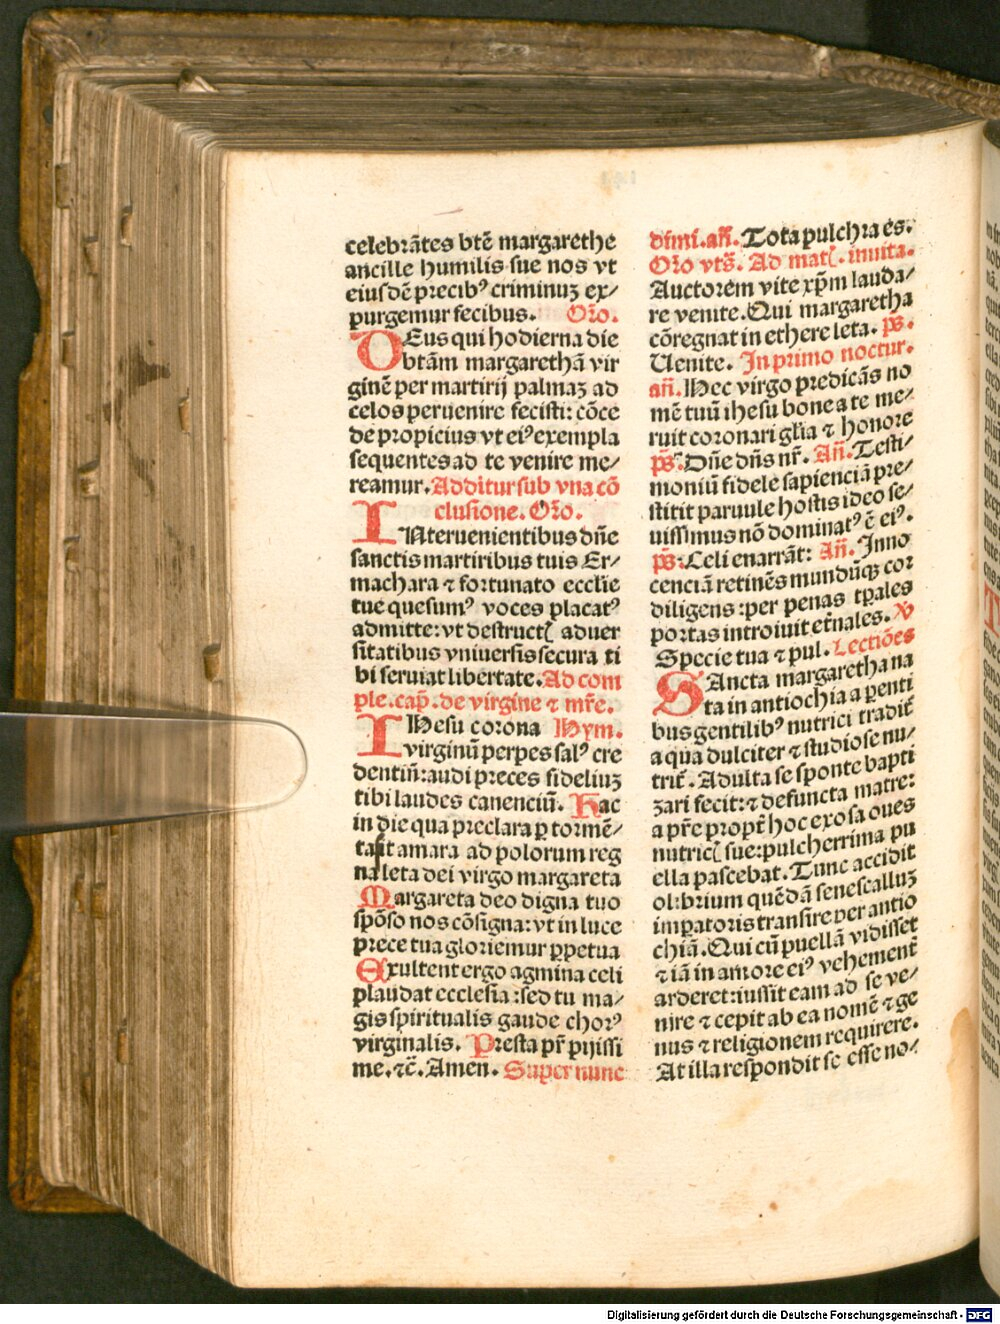 celebrātes btē margarethe
ancille humilis sue nos vt
eiusdē precibꝰ criminuꝫ ex/
purgemur fecibus. Oꝛo.
DEus qui hodierna die
btām margarethā vir
ginē per martirij palmaꝫ ad
celos peruenire fecisti: cōce
de propicius vt eiꝰ exempla
sequentes ad te venire me/
reamur. Additur sub vna cō
clusione. Oꝛo.
INteruenientibus dn̄e
sanctis martiribus tuis Er/
machara ⁊ fortunato ecclīe
tue quesumꝰ voces placatꝰ
admitte: vt destruct̄ aduer
sitatibus vniuersis secura ti
bi seruiat libertate. Ad com
ple. cap̄. de virgine ⁊ mr̄e.
IHesu corona Hym.
virginū perpes salꝰ cre
dentiū: audi preces fideliuꝫ
tibi laudes canenciū. Hac
in die qua preclara ꝑ tormē/
ta fit amara ad polorum reg
na leta dei virgo margareta
Margareta deo digna tuo
spōso nos cōsigna: vt in luce
prece tua gloriemur ꝑpetua
Exultent ergo agmina celi
plaudat ecclesia: sed tu ma/
gis spiritualis gaude choꝛꝰ
virginalis. Presta pr̄ pijssi
me. ⁊c̄. Amen. Super nunc
dimi. an̄. Tota pulchra es.
Oꝛo vts̄. Ad mat̄. inuita.
Auctorem vite xp̄m lauda/
re venite. Qui margaretha
cōregnat in ethere leta. ps̄.
Uenite. In primo noctur.
an̄. Hec virgo predicās no
mē tuū ihesu bone a te me/
ruit coronari gl̄ia ⁊ honore
ps̄. Dn̄e dn̄s nr̄. An̄. Testi/
moniū fidele sapienciā pre/
stitit paruule hostis ideo se/
uissimus nō dominatꝰ ē eiꝰ.
ps̄: Celi enarrāt: An̄. Inno
cenciā retinēs mundūqꝫ cor
diligens: per penas tꝑales
portas introiuit et̄nales. V̄
Specie tua ⁊ pul. Lectiōes
SAncta margaretha na
ta in antiochia a ꝑenti
bus gentilibꝰ nutrici tradit̄
a qua dulciter ⁊ studiose nu/
trit̄. Adulta se sponte bapti
ʒari fecit: ⁊ defuncta matre:
a pr̄e propt̄ hoc exosa oues
nutric̄ sue: pulcherrima pu
ella pascebat. Tunc accidit
olibrium quēdā senescalluꝫ
imꝑatoris transire per antio
chiā. Qui cū puellā vidisset
⁊ iā in amore eiꝰ vehement̄
arderet: iussit eam ad se ve/
nire ⁊ cepit ab ea nomē ⁊ ge
nus ⁊ religionem requirere.
At illa respondit se esse no/
Digitalisierung gefördert durch die Deutsche Forschungsgemeinschaft - DFG